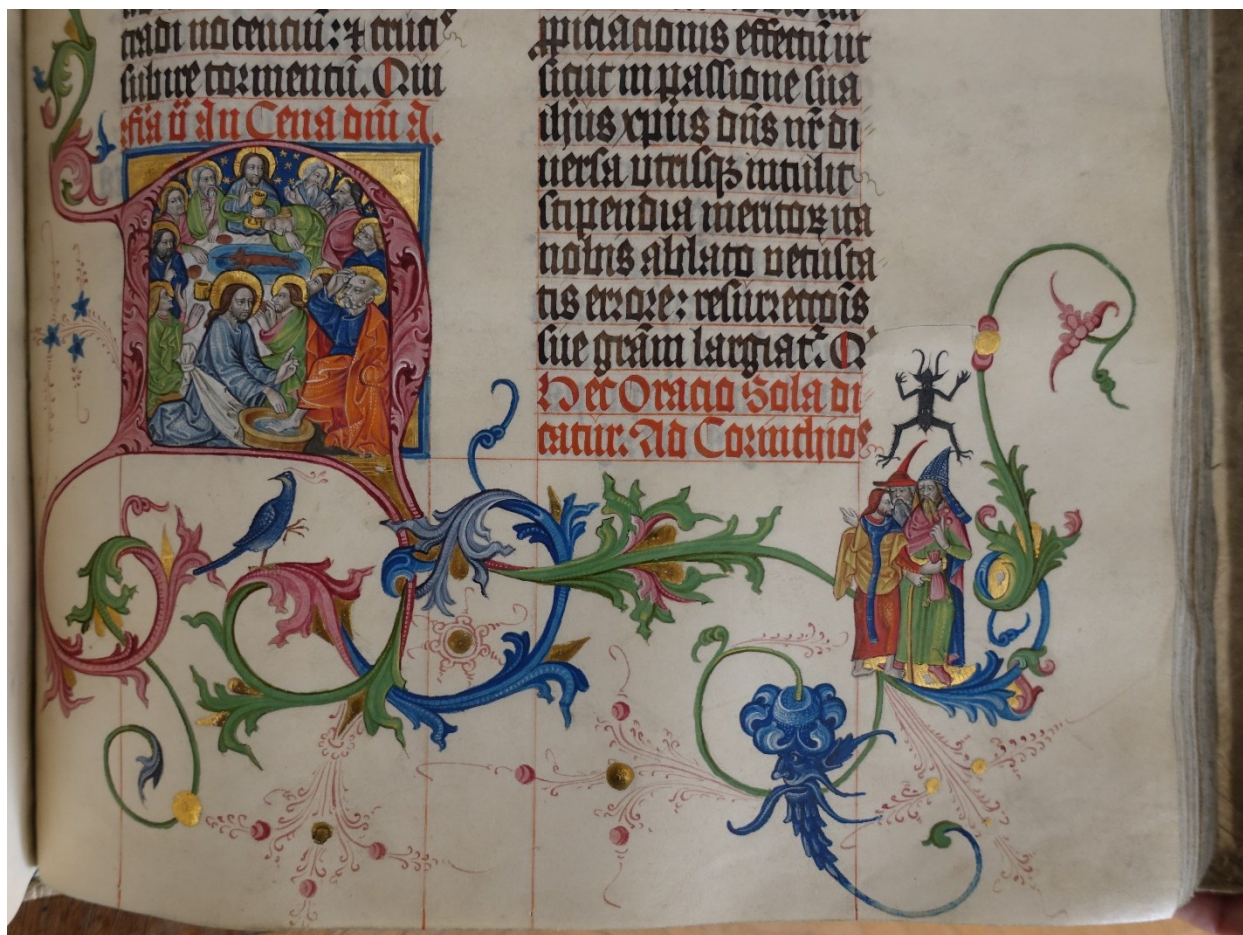 tradi nocenciū: ⁊ cruci⁹
subire tormentū. Qui
f̄ia v̄ i᷑n Cena dm̄ a.
piciacionis effectū ut
sicut in passione sua
ihūs xp̄us dn̄s nr̄ di
uersa utrisqꝫ intulit
stipendia meritoꝝ ita
nobis ablato uetusta
tis errore: resurrectōīs
sue grām largiat᷑. Q
Hec Oracio Sola di
catur. Ad Corinthios